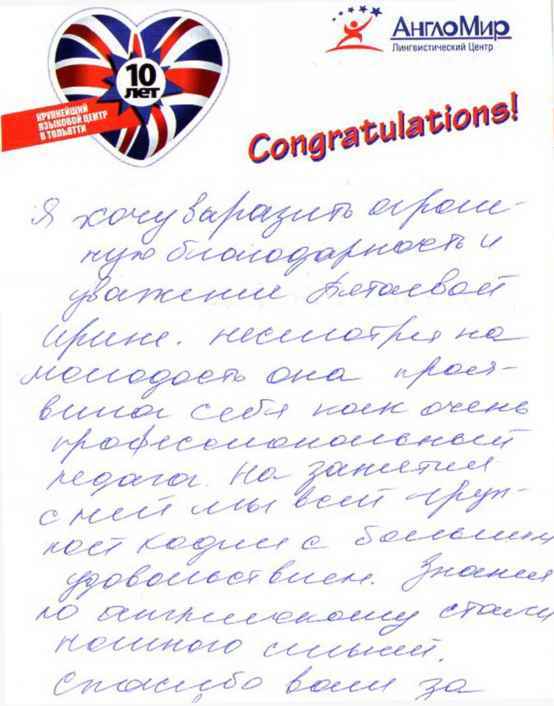 10
лет
КРУПНЕЙШИЙ
ЯЗЫКОВОЙ ЦЕНТР
В ТОЛЬЯТТИ
АнглоМир
Лингвистический Центр
Congratulations!
Я хочу выразить огром-
ную благодарность и
уважение
Ирине. Несмотря на
молодость она проя-
вила себя как очень
профессиональный
педагог. На занятия
с ней мы всей груп-
пой ходим с большим
удовольствием. Знания
по английскому стали
намного сильней.
Спасибо вам за